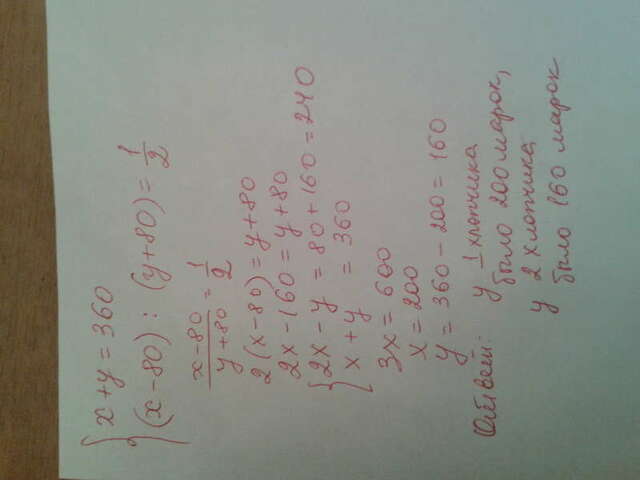 { x + y = 360
(x - 80) : (y + 80) = 1/2
x - 80 / y + 80 = 1/2
2(x - 80) = y + 80
2x - 160 = y + 80
{ 2x - y = 80 + 160 = 240
x + y = 360
3x = 600
x = 200
y = 360 - 200 = 160
Ответ: у 1 хлопчика
было 200 марок,
у 2 хлопчика
было 160 марок